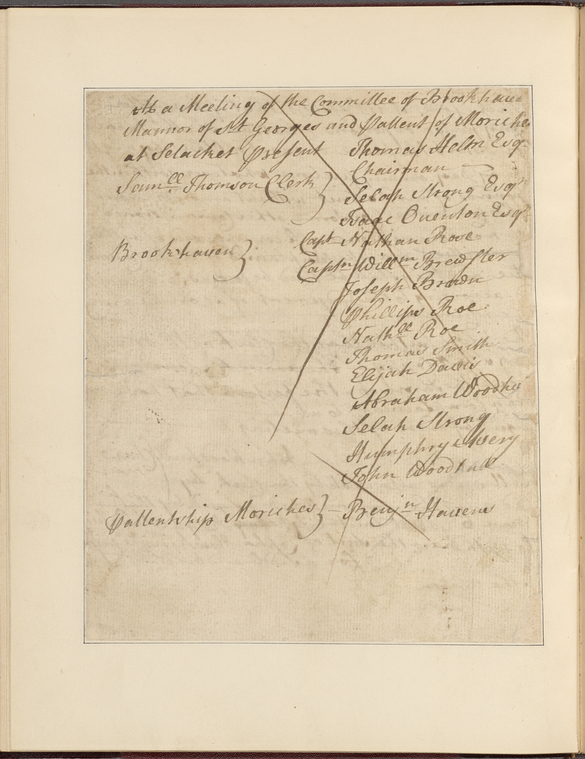 At a Meeting of the Committee of Brookhaven
Mannor of St Georges and Pattent of Moriches
at Setacket Present Thomas Helm Esqr
Chairman
Samll Thomson Clerk }
Selah Strong Esqr
Isaac Overton Esqr
Capt Nathan Rose
Brookhaven } Captn Willm Brewster
Joseph Brown
Phillips Roe
Nathll Roe
Thomas Smith
Elijah Davis
Abraham Woodhu
Selah Strong
Humphry Avery
John Woodhull
Pattentship Moriches } Benjn Havens